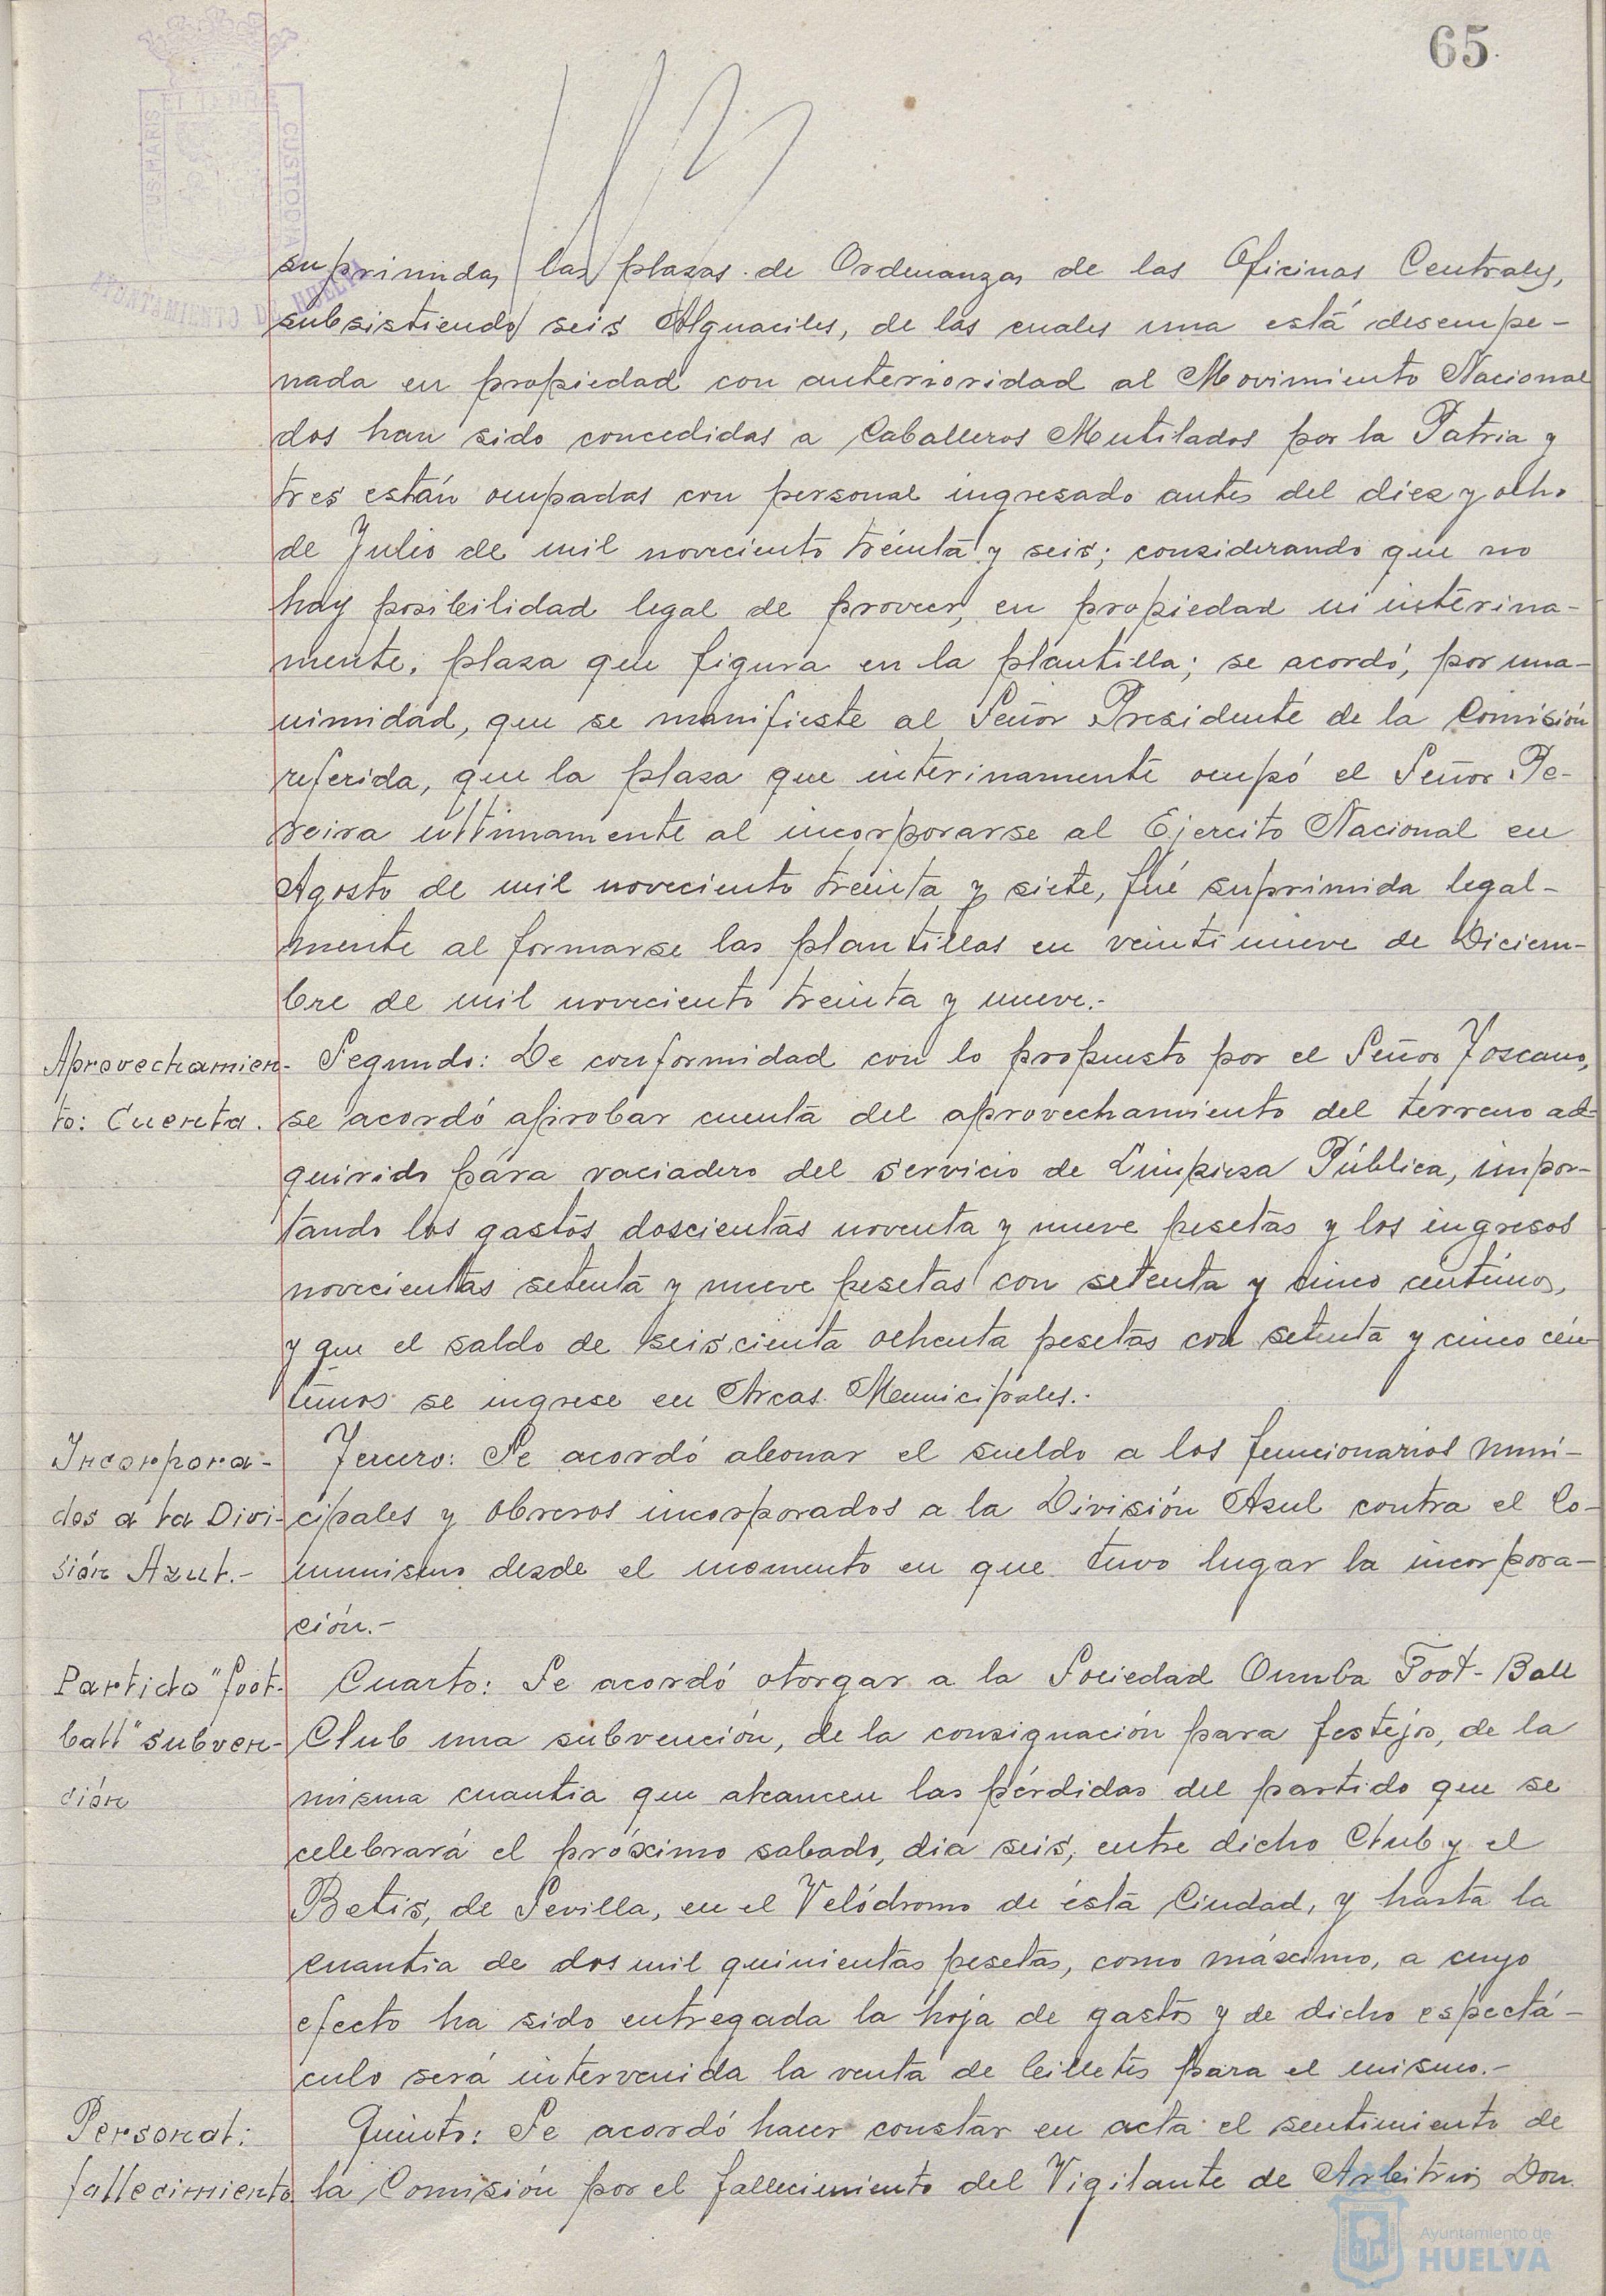 65
US MARIS
ET TERRE
CUSTODIA
AYUNTAMIENTO DE HUELVA
suprimidas las plazas de Ordenanzas de las Oficinas Centrales,
subsistiendo seis Alguaciles, de las cuales una está desempe-
nada en propiedad con anterioridad al Movimiento Nacional
dos han sido concedidas a Caballeros Mutilados por la Patria y
tres están ocupadas con personal ingresado antes del diez y ocho
de Julio de mil noveciento treinta y seis; considerando que no
hay posibilidad legal de proveer, en propiedad ni interina-
mente, plaza que figura en la plantilla; se acordó, por una-
nimidad, que se manifieste al Señor Presidente de la Comisión
referida, que la plaza que interinamente ocupó el Señor Pe-
reira ultimamente al incorporarse al Ejercito Nacional en
Agosto de mil noveciento treinta y siete, fué suprimida legal-
mente al formarse las plantillas en veintinueve de Diciem-
bre de mil noveciento treinta y nueve.-
Aprovechamien- Segundo: De conformidad con lo propuesto por el Señor Toscano,
to: Cuenta. se acordó aprobar cuenta del aprovechamiento del terreno ad-
quirido para vaciadero del servicio de Limpieza Pública, impor-
tando los gastos doscientas noventa y nueve pesetas y los ingresos
novecientas setenta y nueve pesetas con setenta y cinco centimos,
y que el saldo de seiscienta ochenta pesetas con setenta y cinco cén-
timos se ingrese en Arcas Municipales.-
Incorpora- Tercero: Se acordó abonar el sueldo a los funcionarios muni-
dos a la Divi- cipales y obreros incorporados a la División Azul contra el Co-
sión Azul.- munismo desde el momento en que tuvo lugar la incorpora-
ción.-
Partido "foot- Cuarto: Se acordó otorgar a la Sociedad Onuba Foot-Ball
ball" subven- Club una subvención, de la consignación para festejos, de la
ción misma cuantia que alcancen las pérdidas del partido que se
celebrará el próximo sabado, dia seis, entre dicho Club y el
Betis, de Sevilla, en el Velódromo de ésta Ciudad, y hasta la
cuantia de dos mil quinientas pesetas, como máximo, a cuyo
efecto ha sido entregada la hoja de gastos y de dicho espectá-
culo será intervenida la venta de billetes para el mismo.-
Personal: Quinto: Se acordó hacer constar en acta el sentimiento de
fallecimiento la Comisión por el fallecimiento del Vigilante de Arbitrios Don
Ayuntamiento de
HUELVA